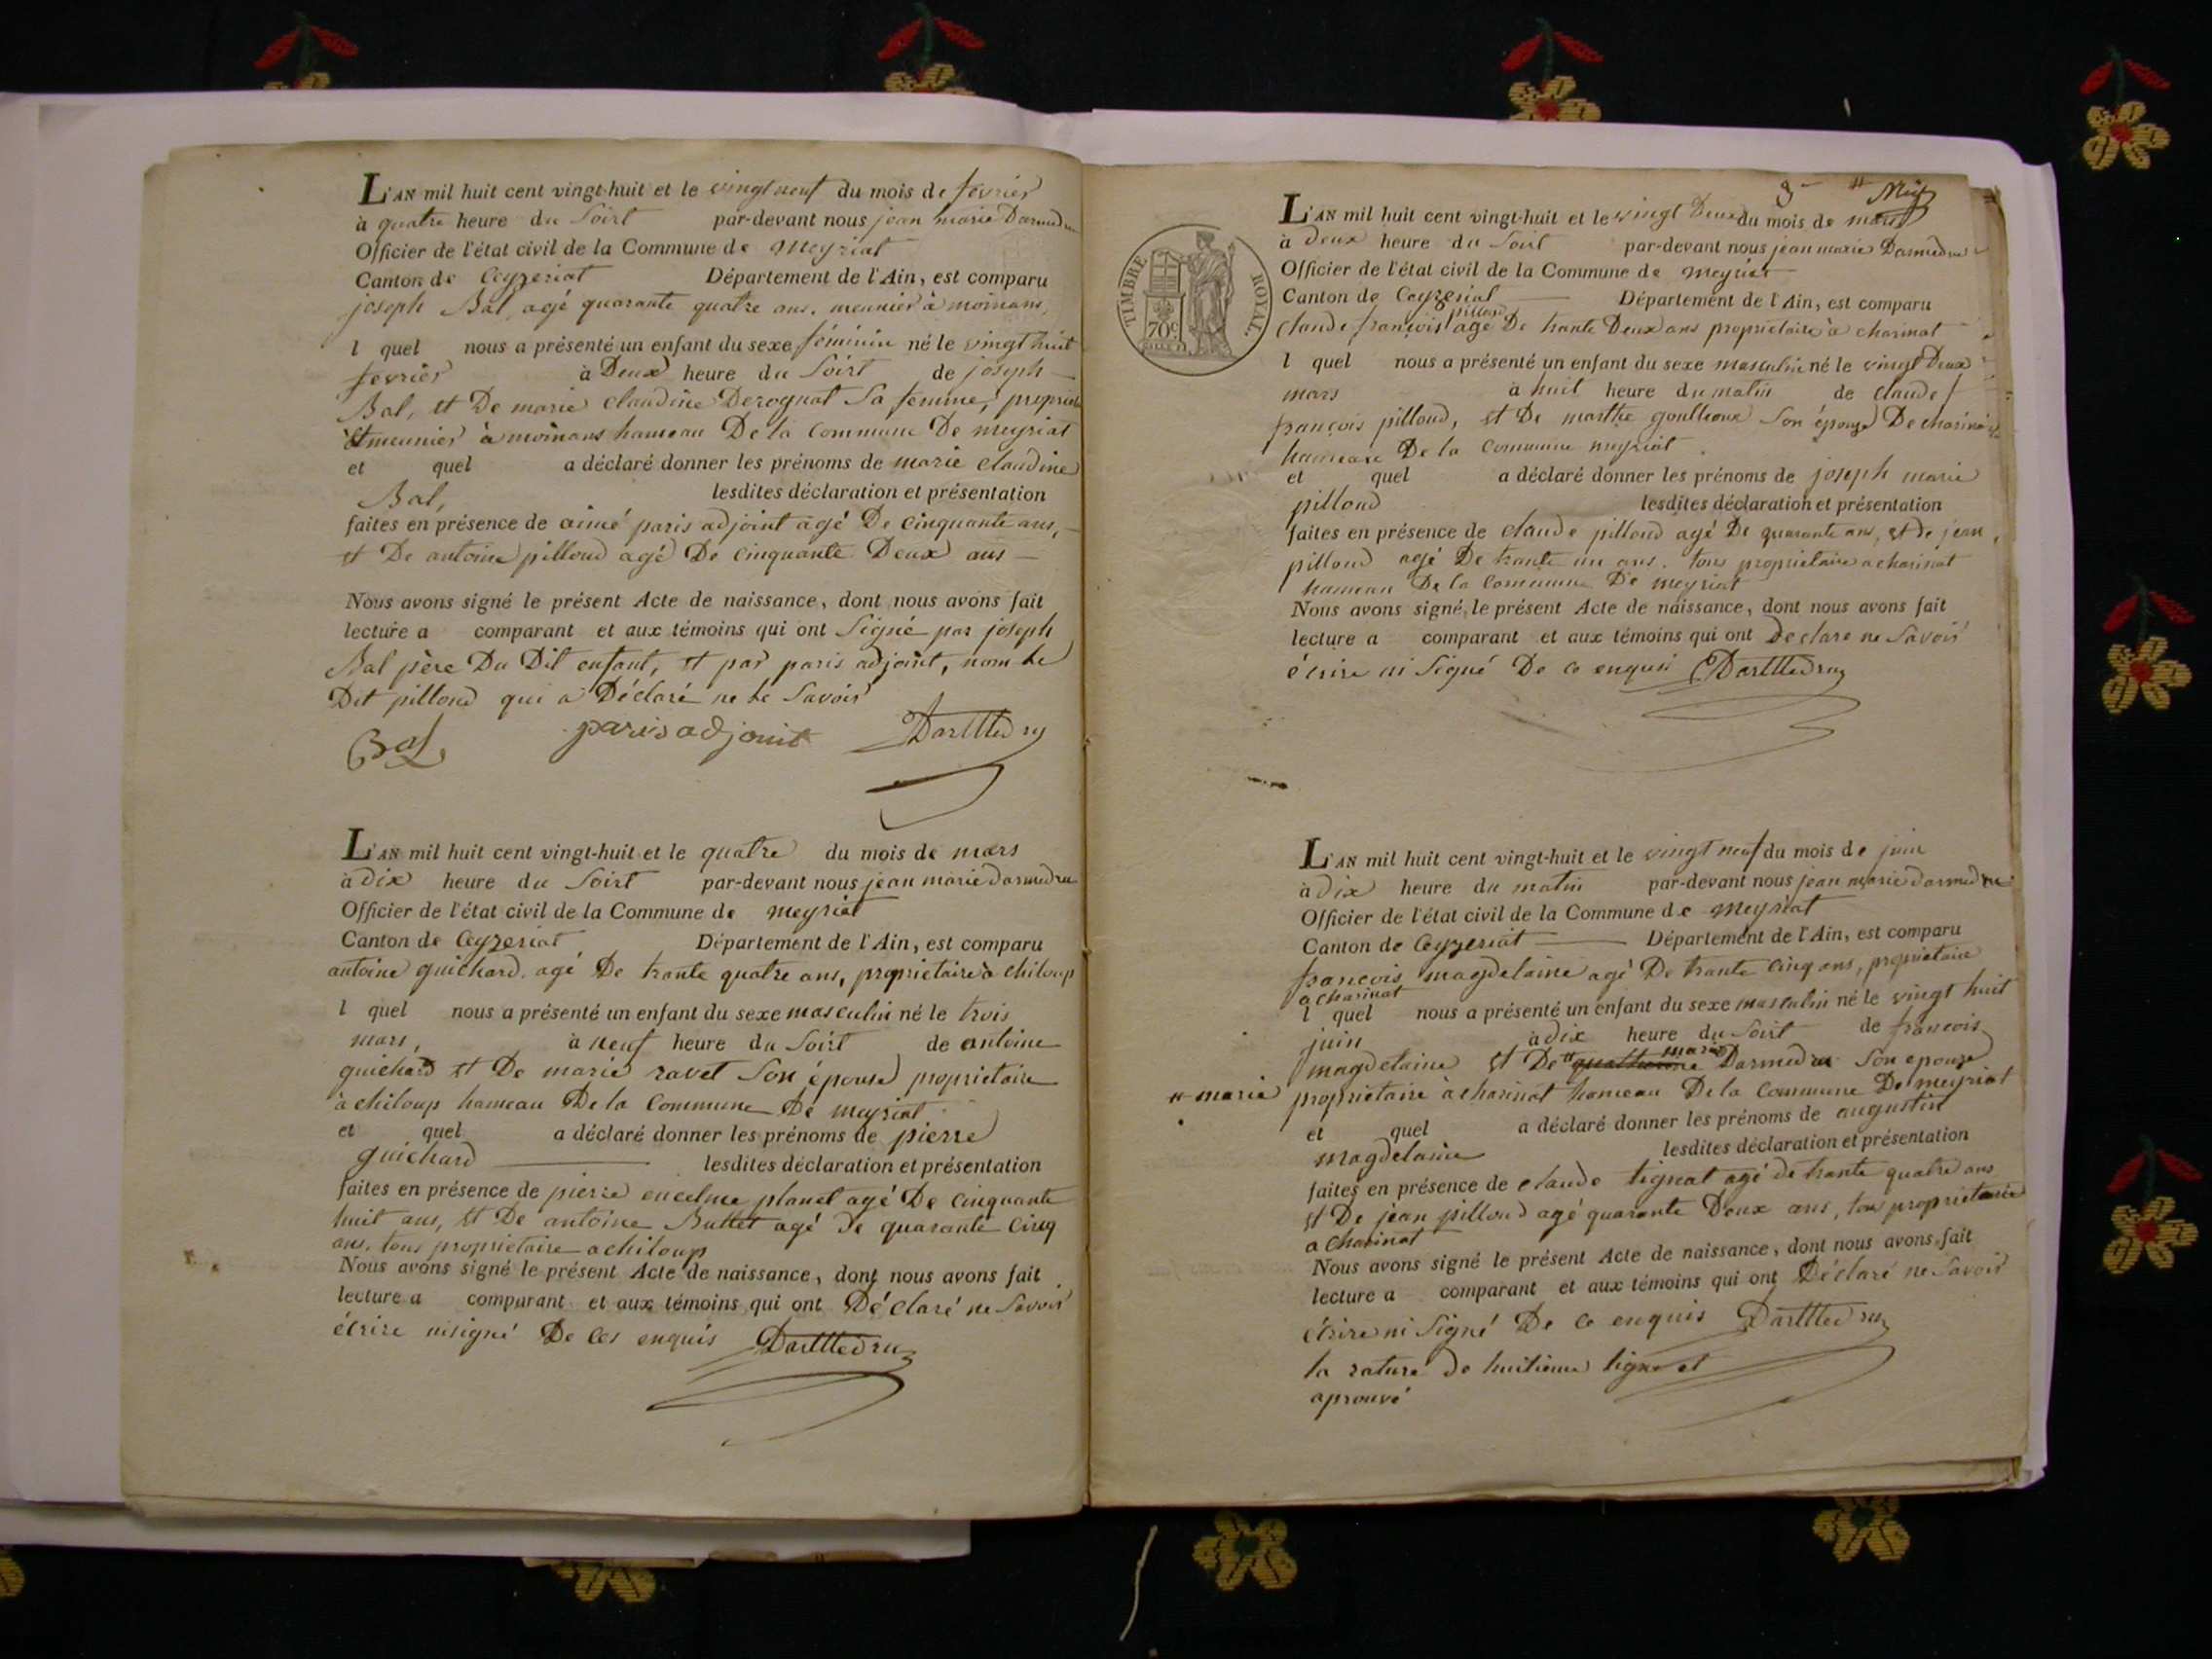 L'AN mil huit cent vingt-huit et le vingt neuf du mois de fevrier
à quatre heure du Soirt par-devant nous jean marie Darmedru
Officier de l'état civil de la Commune de meyriat
Canton de Ceyzeriat Département de l'Ain, est comparu
joseph Bal, agé quarante quatre ans, meunier à moinans,
l quel nous a présenté un enfant du sexe féminin né le vingt huit
fevrier à Deux heure du Soirt de joseph
Bal, et De marie claudine Derognat Sa femme,
et meunier à moinans hameau De la Commune De meyriat
et quel a déclaré donner les prénoms de marie claudine
Bal, lesdites déclaration et présentation
faites en présence de aimé paris adjoint agé De cinquante ans,
et De antoine pilloud agé De Cinquante Deux ans
Nous avons signé le présent Acte de naissance, dont nous avons fait
lecture a comparant et aux témoins qui ont Signé par joseph
Bal père Du Dit enfant, et par paris adjoint, nom le
Dit pilloud qui a Déclaré ne le Savoir
Bal paris adjoint Darmedru
L'AN mil huit cent vingt-huit et le quatre du mois de mars
à dix heure du Soirt par-devant nous jean marie darmedru
Officier de l'état civil de la Commune de meyriat
Canton de Ceyzeriat Département de l'Ain, est comparu
antoine guichard, agé De trante quatre ans, proprietaire à chiloup
l quel nous a présenté un enfant du sexe masculin né le trois
mars, à neuf heure du Soirt de antoine
guichard et De marie ravet Son épouse proprietaire
à chiloup hameau De la Commune De meyriat
et quel a déclaré donner les prénoms de pierre
guichard lesdites déclaration et présentation
faites en présence de pierre encelme planet agé De Cinquante
huit ans, et De antoine Buttet agé De quarante cinq
ans. tous proprietaire a chiloup
Nous avons signé le présent Acte de naissance, dont nous avons fait
lecture a comparant et aux témoins qui ont Déclaré ne Savoir
écrire ni signé De ces enquis Darmedru
3
TIMBRE ROYAL.
70c
L'AN mil huit cent vingt-huit et le vingt Deux du mois de mars
à deux heure du Soirt par-devant nous jean marie Darmedru
Officier de l'état civil de la Commune de meyriat
Canton de Ceyzeriat Département de l'Ain, est comparu
claude françois pilloud agé De trante Deux ans proprietaire à charinat
l quel nous a présenté un enfant du sexe masculin né le vingt Deux
mars à huit heure du matin de claude
françois pilloud, et De marthe goulleoux Son épouse De charinat
hameau De la Commune meyriat
et quel a déclaré donner les prénoms de joseph marie
pilloud lesdites déclaration et présentation
faites en présence de claude pilloud agé De quarante ans, et de jean
pilloud agé De trante un ans. tous proprietaire a charinat
hameau De la Commune De meyriat
Nous avons signé le présent Acte de naissance, dont nous avons fait
lecture a comparant et aux témoins qui ont Declare ne Savoir
écrire ni Signé De ce enquis Darmedru
L'AN mil huit cent vingt-huit et le vingt neuf du mois de juin
à dix heure du matin par-devant nous jean marie darmedru
Officier de l'état civil de la Commune de meyriat
Canton de Ceyzeriat Département de l'Ain, est comparu
francois magdelaine agé De trante cinq ans, proprietaire
a charinat
l quel nous a présenté un enfant du sexe masculin né le vingt huit
juin à dix heure du Soirt de francois
magdelaine et De marie Darmedru Son epouse
marie proprietaire à charinat hameau De la Commune De meyriat
et quel a déclaré donner les prénoms de augustin
magdelaine lesdites déclaration et présentation
faites en présence de claude tignat agé de trante quatre ans
et De jean pilloud agé quarante Deux ans, tous proprietaire
a charinat
Nous avons signé le présent Acte de naissance, dont nous avons fait
lecture a comparant et aux témoins qui ont Déclaré ne Savoir
écrire ni Signé De ce enquis Darmedru
la rature de huitieme ligne et
aprouvé